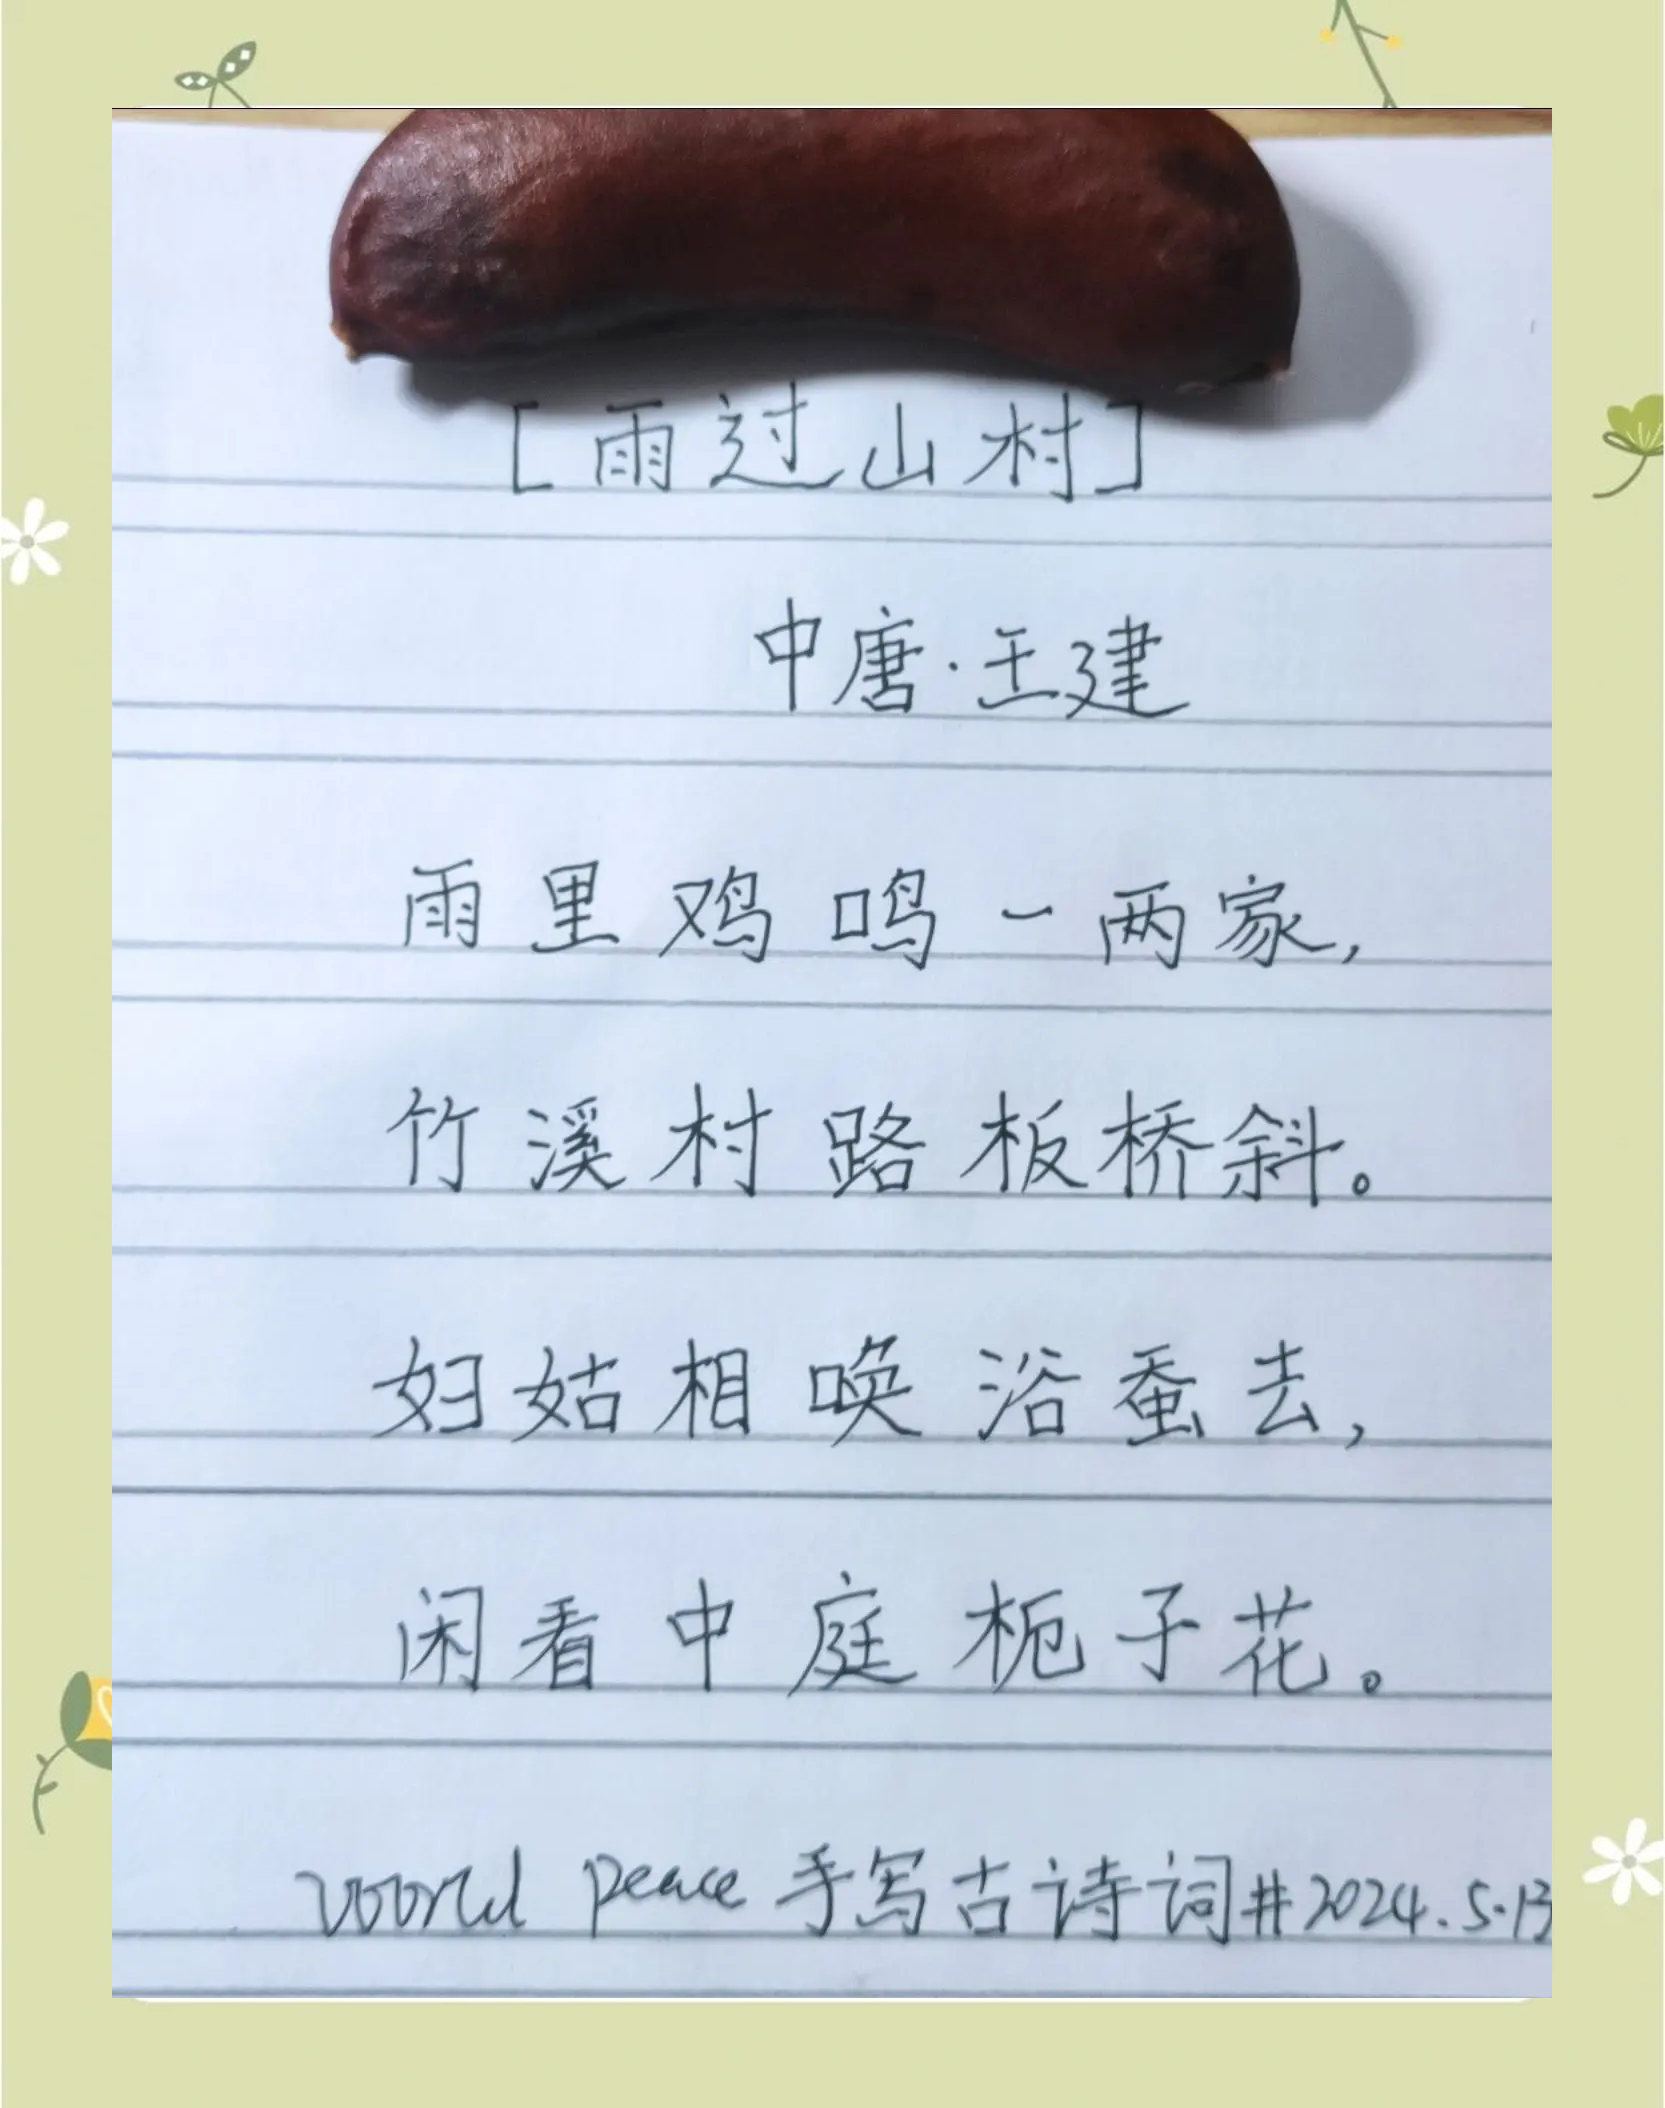 [雨过山村]
中唐·王建
雨里鸡鸣一两家,
竹溪村路板桥斜。
妇姑相唤浴蚕去,
闲看中庭栀子花。
World peace 手写古诗词#2024.5.13